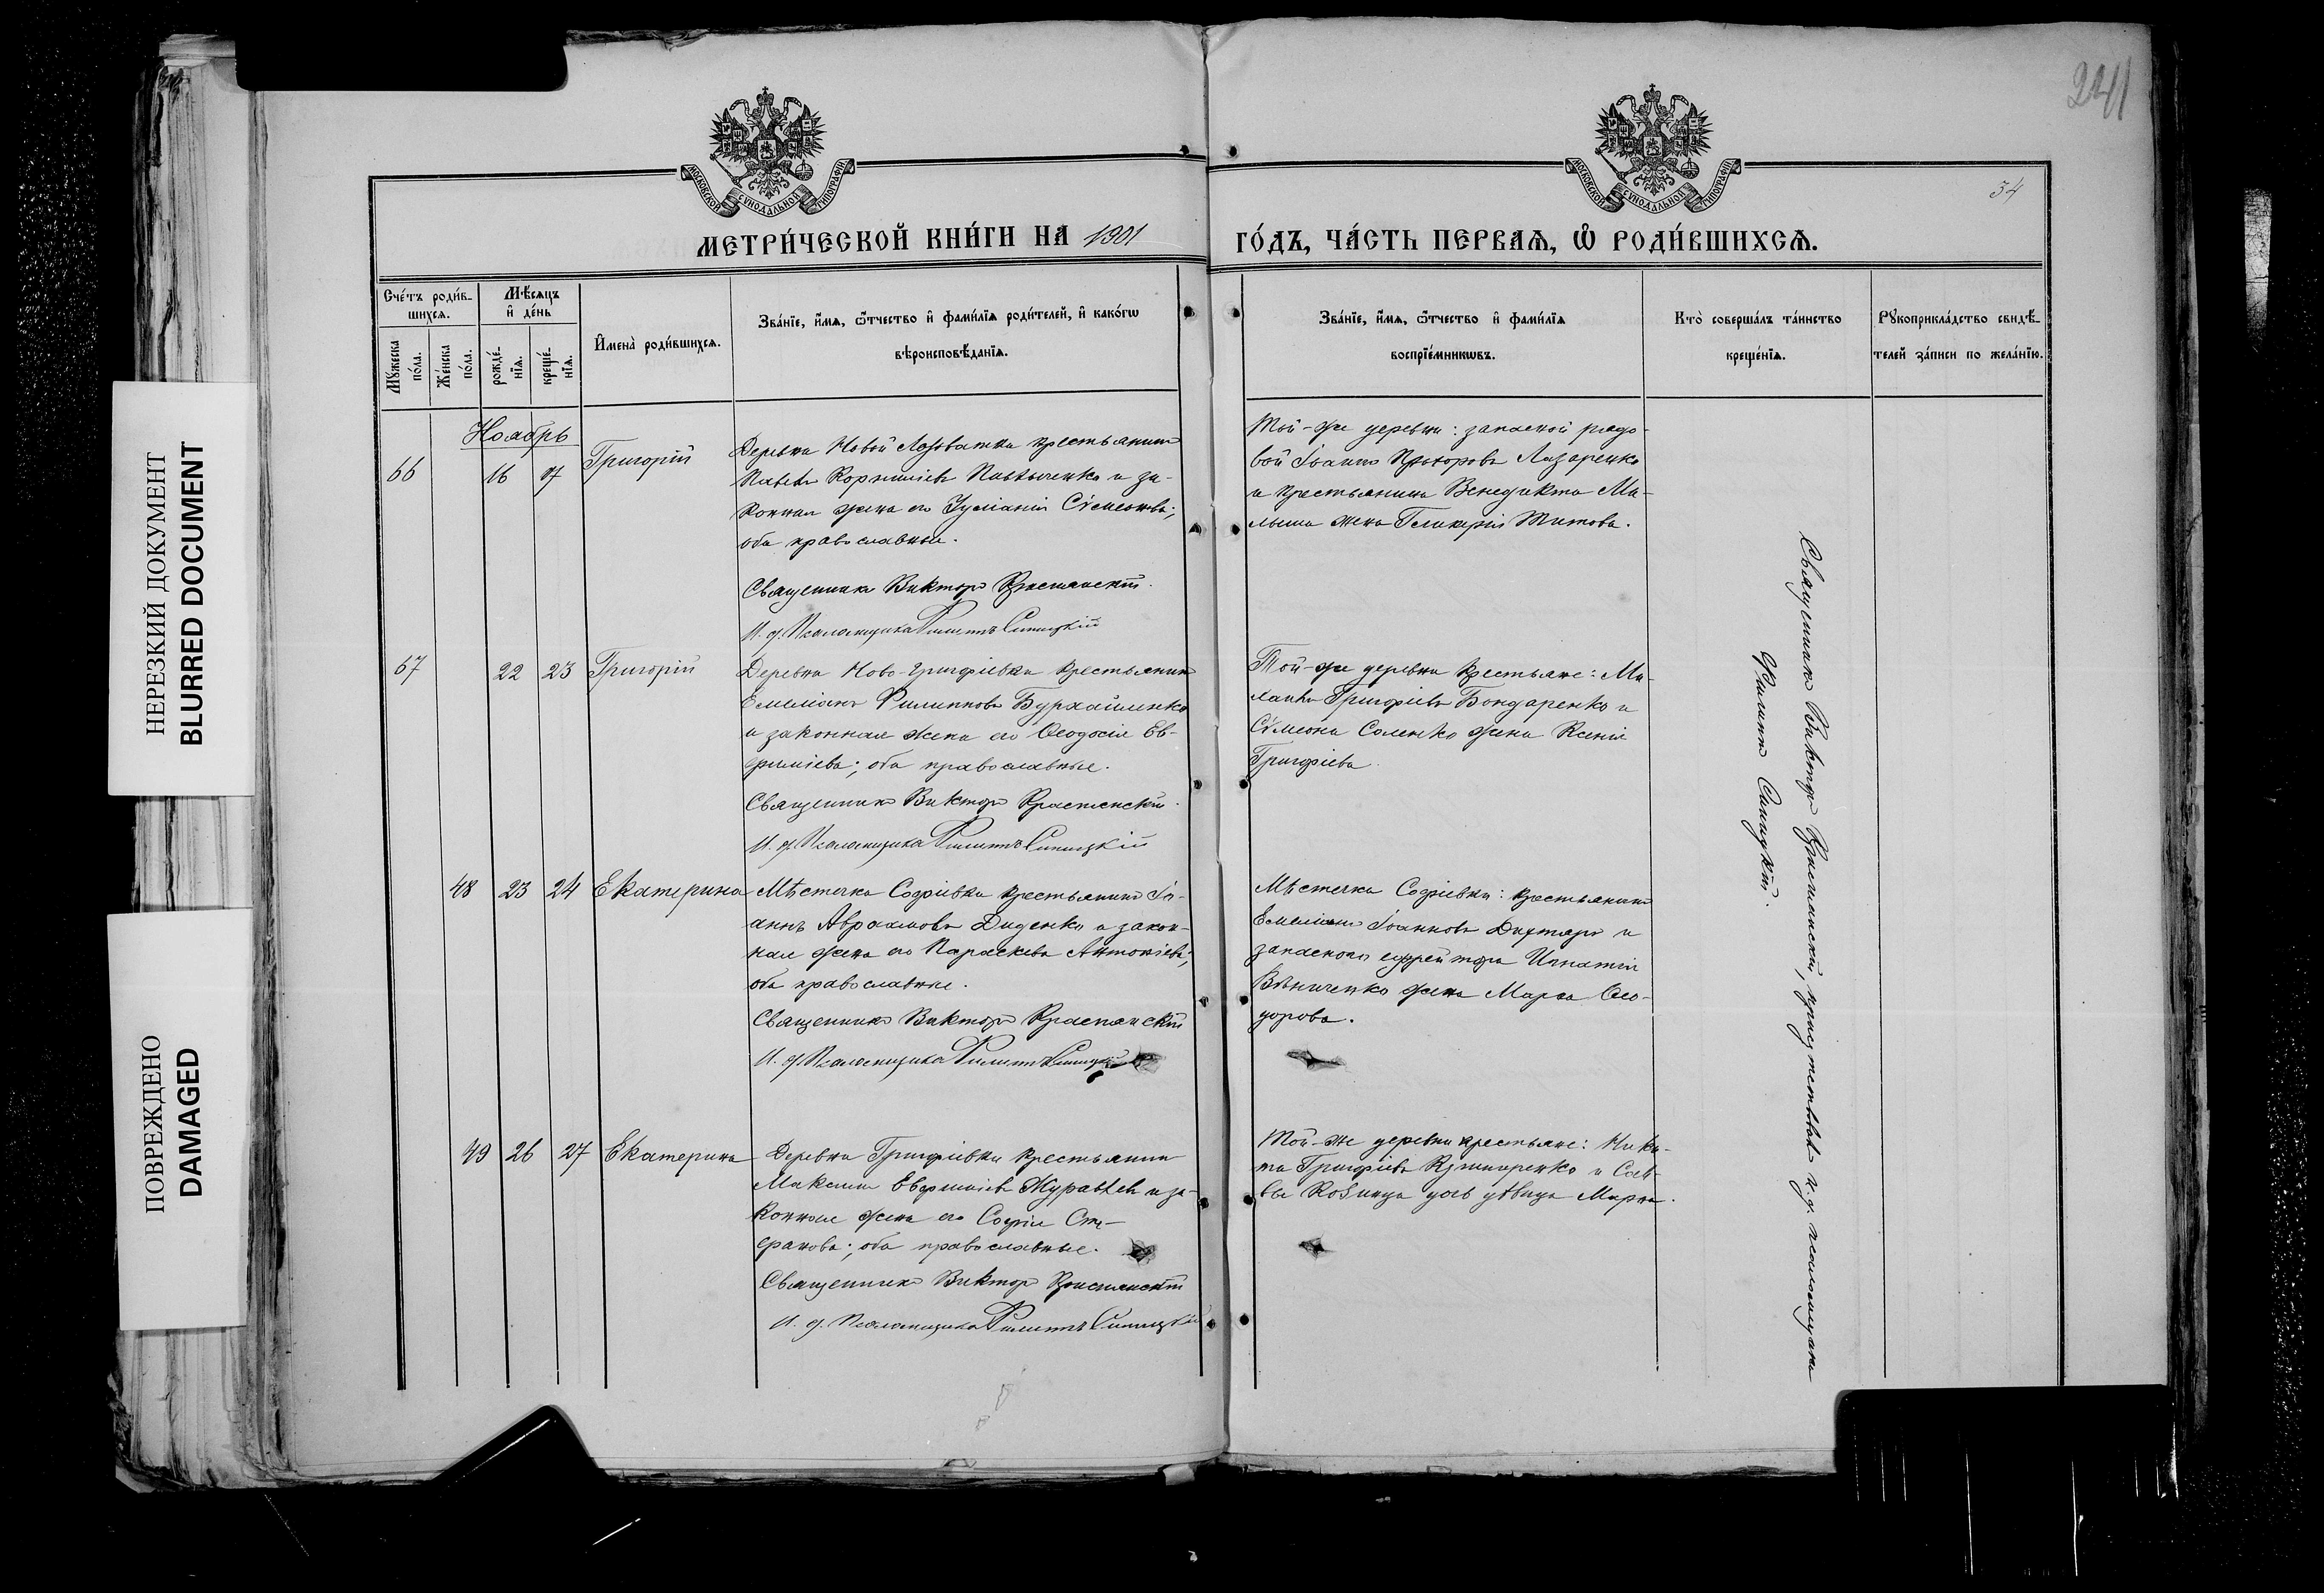 НЕРЕЗКИЙ ДОКУМЕНТ
BLURRED DOCUMENT
ПОВРЕЖДЕНО
DAMAGED
241
34
МОСКОВСКОЙ СѴНОДАЛЬНОЙ ТИПОГРАФІИ
МОСКОВСКОЙ СѴНОДАЛЬНОЙ ТИПОГРАФІИ
МЕТРИ́ЧЕСКОЙ КНИ́ГИ НА 1901
ГО́ДЪ, ЧА́СТЬ ПЕРВАѦ, Ѽ РОДИ́ВШИХСѦ.
Сче́тъ роди́в-
шихсѧ.
Мѣ́сѧцъ
и҆ де́нь
Мꙋ́жеска
по́ла.
Же́нска
по́ла.
рожде́-
нїѧ.
креще́-
нїѧ.
И҆мена̀ роди́вшихсѧ.
Зва́нїе, и҆́мѧ, ѻ҆́тчество и҆ фами́лїѧ роди́телей, и҆ како́гѡ
вѣроисповѣ́данїѧ.
Зва́нїе, и҆́мѧ, ѻ҆́тчество и҆ фами́лїѧ
воспрїе́мникѡвъ.
Кто̀ соверша́лъ та́инство
креще́нїѧ.
Рꙋкоприкла́дство свидѣ́-
телей за́писи по жела́нїю.
Ноябрь
66 16 17 Григорій
Деревни Новой Лозоватки крестьянинъ
Павелъ Корниліевъ и за-
конная жена его Іуліанія Сѵмеонова;
оба православные.
Священникъ Викторъ Краснянскій.
И. д. Псаломщика Филиппъ Синицкій
Той-же деревни: запасной рядо-
вой Іоаннъ Прохоровъ Лазаренко
и крестьянина Венедикта Ма-
лыша жена Гликерія Титова.
67 22 23 Григорій
Деревни Ново-Григоріевки крестьянинъ
Емеліанъ Филипповъ Бурхайленко
и законная жена его Ѳеодосія Ев-
фиміева; оба православные.
Священникъ Викторъ Краснянскій.
И. д. Псаломщика Филиппъ Синицкій
Той-же деревни крестьяне: Ми-
хаилъ Григоріевъ Бондаренко и
Сѵмеона Соленко жена Ксенія
Григоріева.
48 23 24 Екатерина
Мѣстечка Софіевки крестьянинъ Іо-
аннъ Авраамовъ Диденко и закон-
ная жена его Параскева Антоніева;
оба православные.
Священникъ Викторъ Краснянскій
И. д. Псаломщика Филиппъ Синицкій
Мѣстечка Софіевки: крестьянинъ
Емеліанъ Іоанновъ Дихтярь и
запаснаго ефрейтора Игнатія
Вѣниченко жена Марѳа Ѳео-
дорова.
49 26 27 Екатерина
Деревни Григоріевки крестьянинъ
Максимъ Евфиміевъ Журавель и за-
конная жена его Софія Сте-
фанова; оба православные.
Священникъ Викторъ Краснянскій
И. д. Псаломщика Филиппъ Синицкій
Той-же деревни крестьяне: Ники-
та Григоріевъ и Сав-
вы дочь дѣвица Марѳа.
Священникъ Викторъ Краснянскій, присутствовалъ и. д. псаломщика
Филиппъ Синицкій.